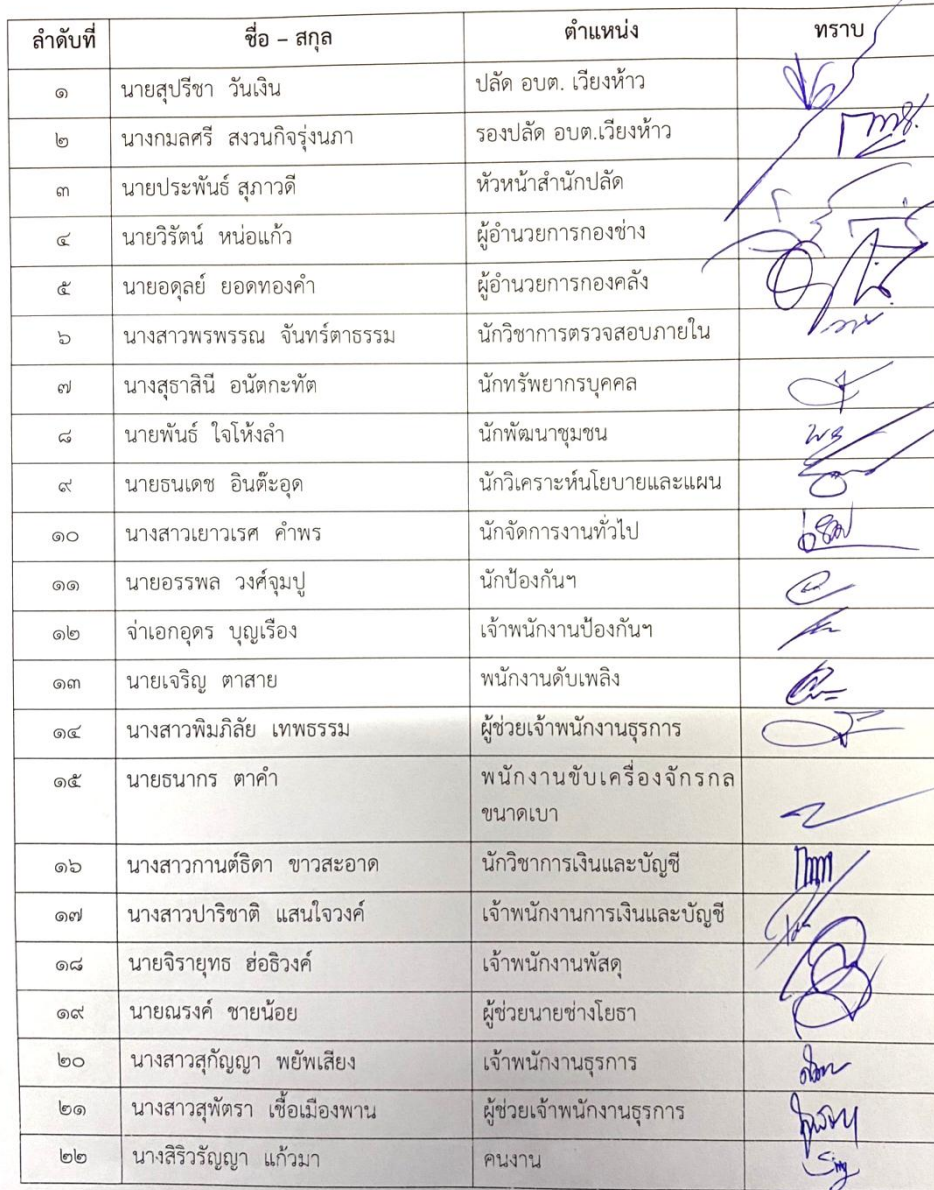 ลำดับที่ ชื่อ – สกุล ตำแหน่ง ทราบ
๑ นายสุปรีชา วันเงิน ปลัด อบต. เวียงห้าว
๒ นางกมลศรี สงวนกิจรุ่งนภา รองปลัด อบต.เวียงห้าว
๓ นายประพันธ์ สุภาวดี หัวหน้าสำนักปลัด
๔ นายวิรัตน์ หน่อแก้ว ผู้อำนวยการกองช่าง
๕ นายอดุลย์ ยอดทองคำ ผู้อำนวยการกองคลัง
๖ นางสาวพรพรรณ จันทร์ตาธรรม นักวิชาการตรวจสอบภายใน
๗ นางสุธาสินี อนัตกะทัต นักทรัพยากรบุคคล
๘ นายพันธ์ ใจโห้งลำ นักพัฒนาชุมชน
๙ นายธนเดช อินต๊ะอุด นักวิเคราะห์นโยบายและแผน
๑๐ นางสาวเยาวเรศ คำพร นักจัดการงานทั่วไป
๑๑ นายอรรพล วงศ์จุมปู นักป้องกันฯ
๑๒ จ่าเอกอุดร บุญเรือง เจ้าพนักงานป้องกันฯ
๑๓ นายเจริญ ตาสาย พนักงานดับเพลิง
๑๔ นางสาวพิมภิลัย เทพธรรม ผู้ช่วยเจ้าพนักงานธุรการ
๑๕ นายธนากร ตาคำ พนักงานขับเครื่องจักรกล
ขนาดเบา
๑๖ นางสาวกานต์ธิดา ขาวสะอาด นักวิชาการเงินและบัญชี
๑๗ นางสาวปาริชาติ แสนใจวงค์ เจ้าพนักงานการเงินและบัญชี
๑๘ นายจิรายุทธ ฮ่อธิวงค์ เจ้าพนักงานพัสดุ
๑๙ นายณรงค์ ชายน้อย ผู้ช่วยนายช่างโยธา
๒๐ นางสาวสุกัญญา พยัพเสียง เจ้าพนักงานธุรการ
๒๑ นางสาวสุพัตรา เชื้อเมืองพาน ผู้ช่วยเจ้าพนักงานธุรการ
๒๒ นางสิริวรัญญา แก้วมา คนงาน